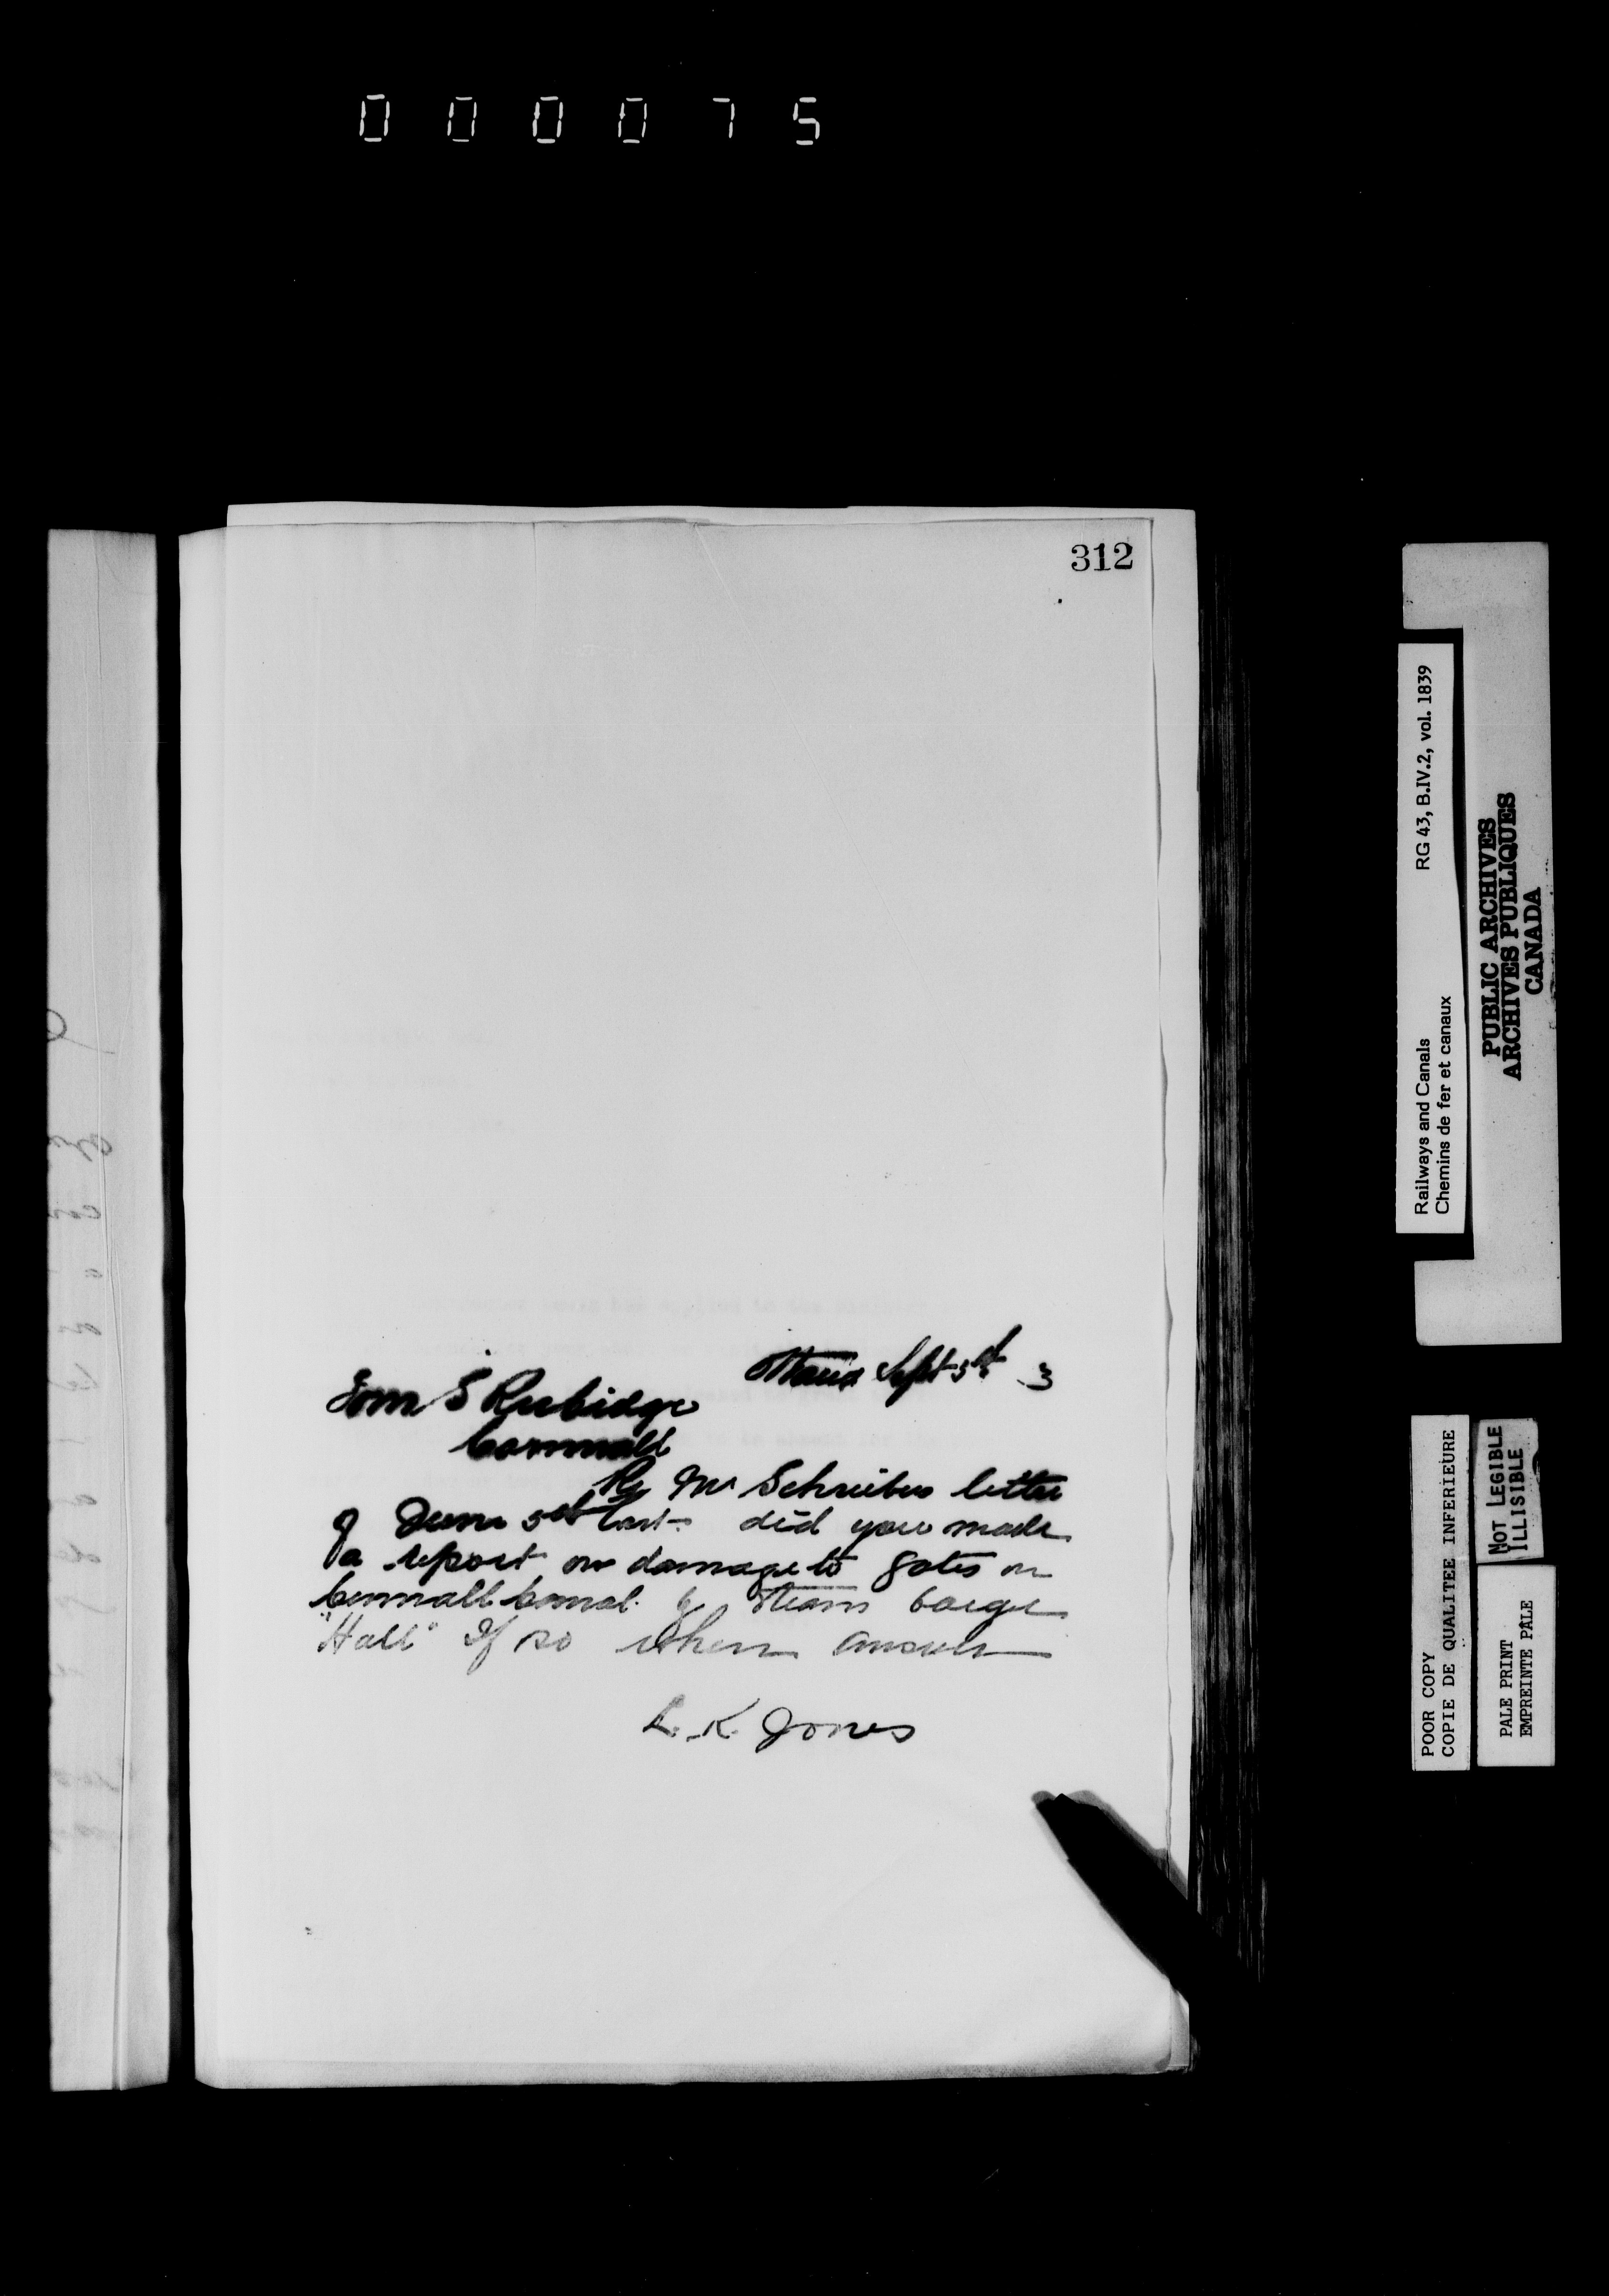 000075
312
Ottawa Sept 5th 3
Tom S Rubidge
Cornwall
Re Mr Schreiber letter
of June 5th last did you made
a report on damage to gates on
Cornwall Canal by Steam barge
"Hall" If so when answer
L. K. Jones
Railways and Canals RG 43, B.IV.2, vol. 1839
Chemins de fer et canaux
PUBLIC ARCHIVES
ARCHIVES PUBLIQUES
CANADA
POOR COPY
COPIE DE QUALITEE INFERIEURE
NOT LEGIBLE
ILLISIBLE
PALE PRINT
EMPREINTE PÂLE